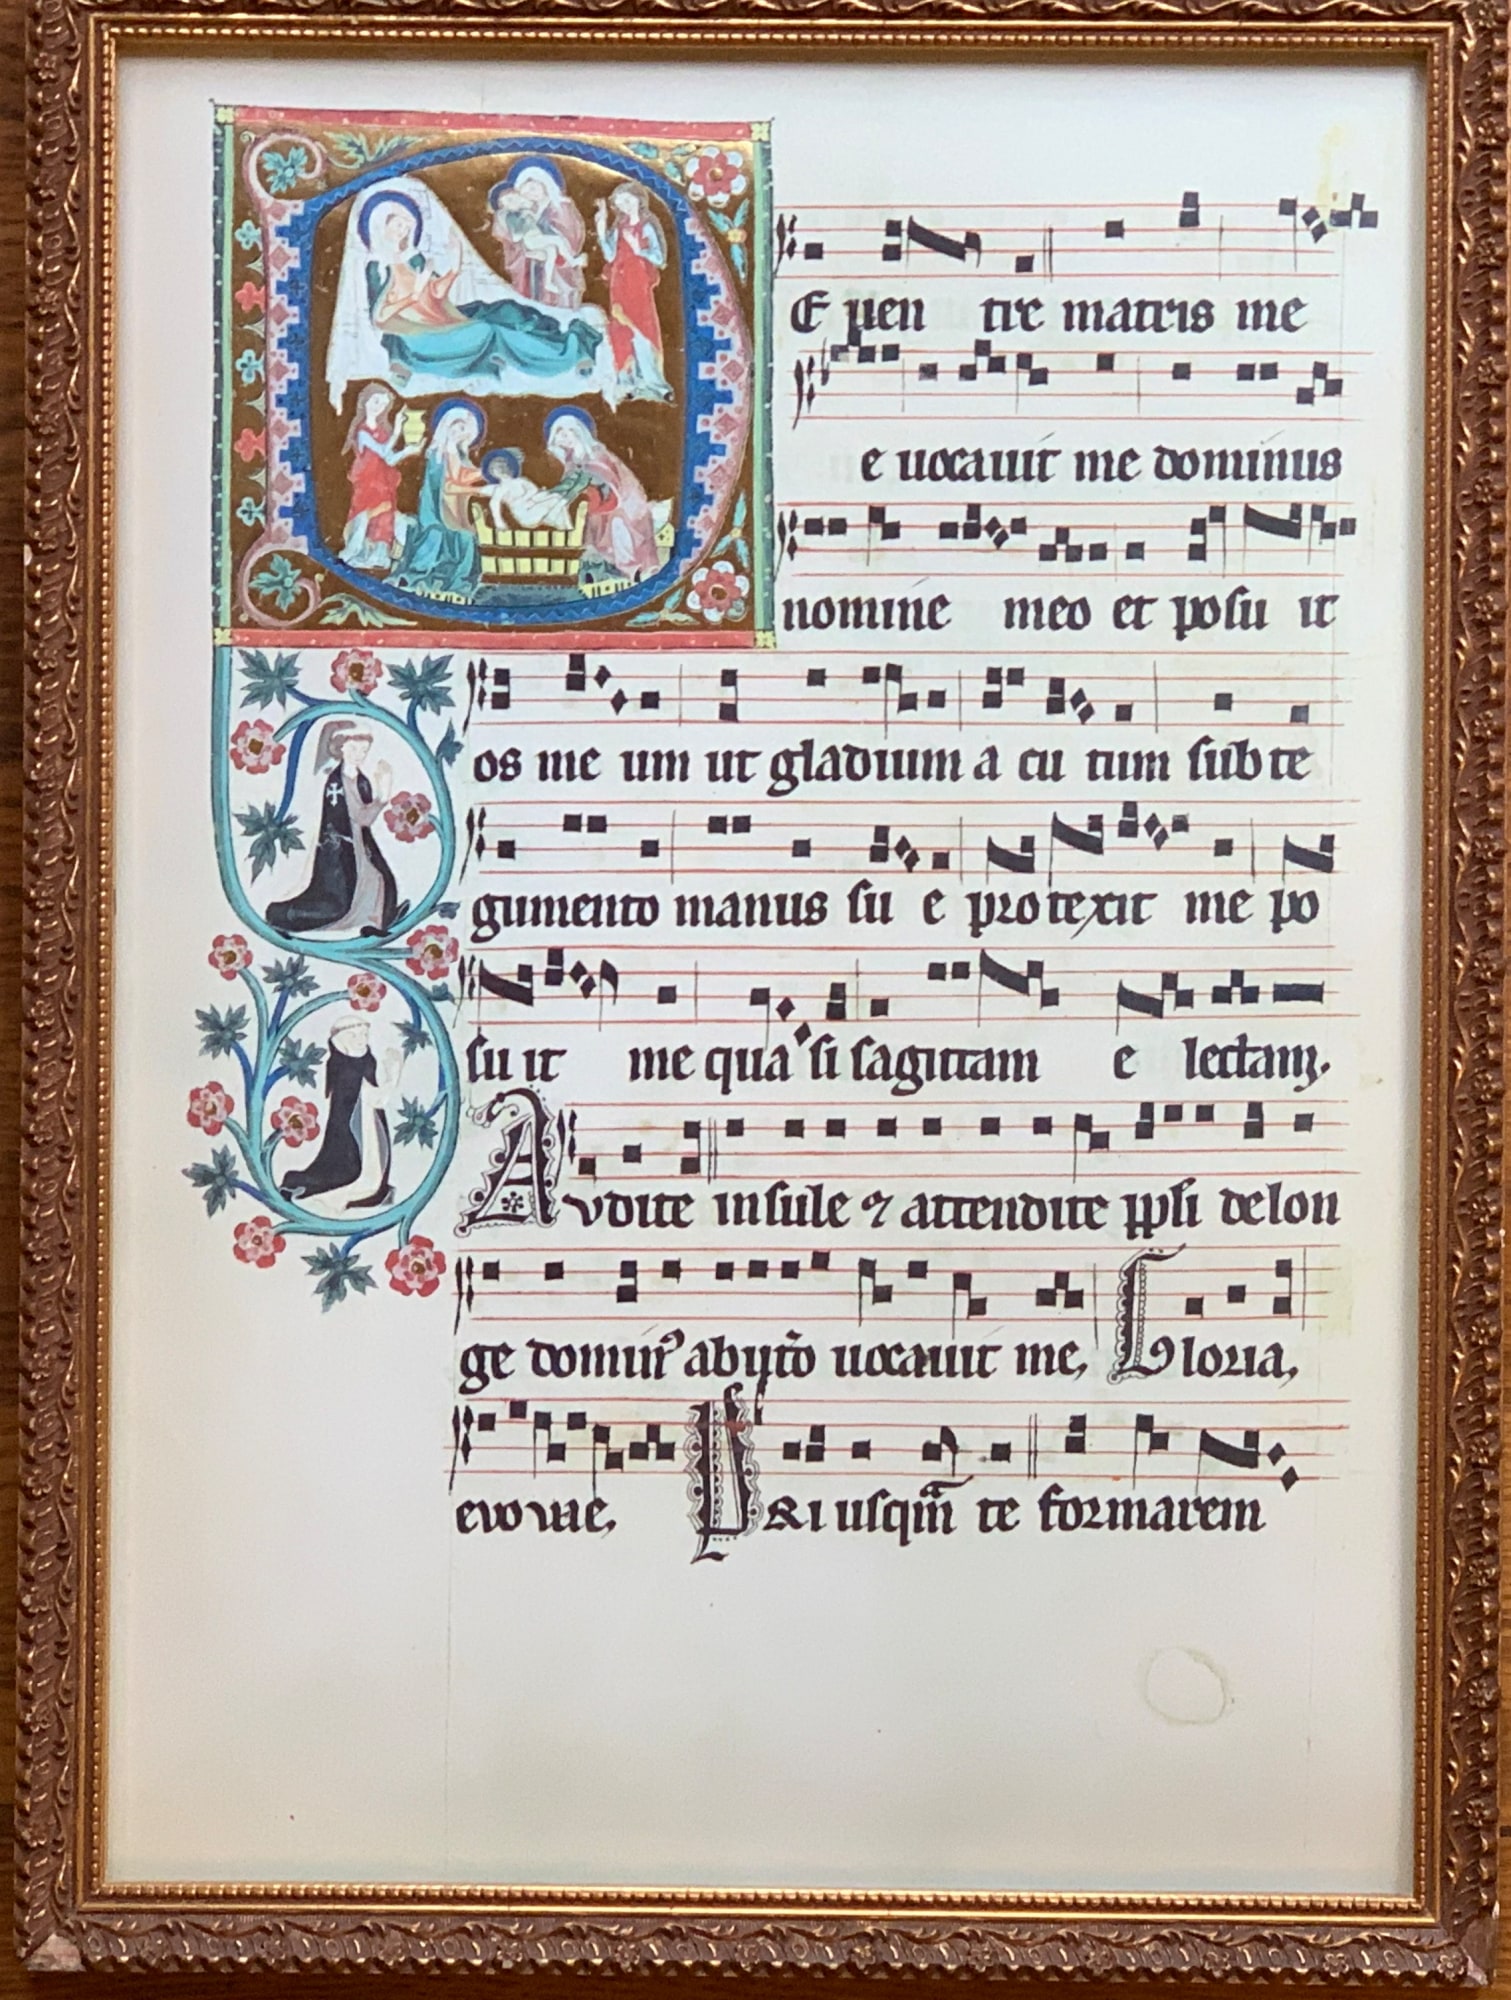 DE uen tre matris me
e uocauit me dominus
nomine meo et posu it
os me um ut gladium a cu tum sub te
gumento manus su e protexit me po
su it me qua si sagittam e lectam.
Audite insule ⁊ attendite ppli de lon
ge domin⁹ ab ut̄o uocauit me, Gloria,
evovae, P &i usqm̄ te formarem